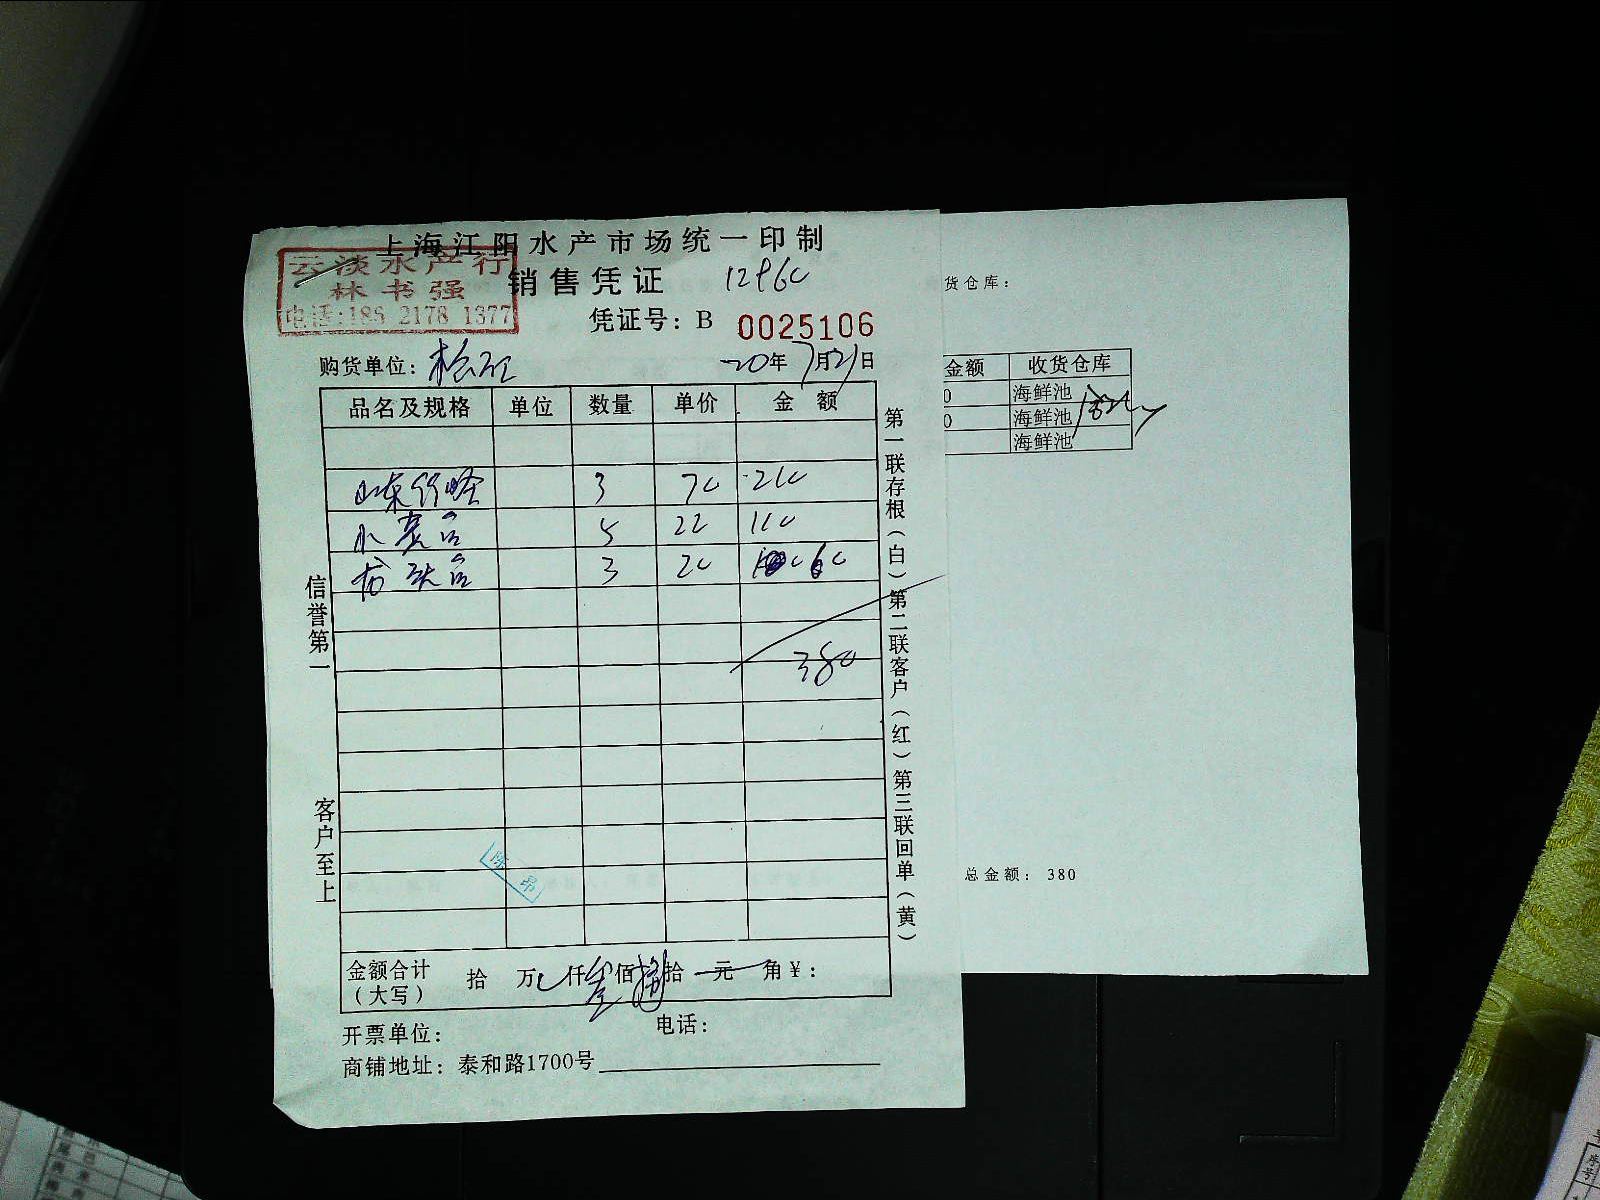 上海江阳水产市场统一印制
云淡水产行
林书强
电话:186 2178 1377
销售凭证
凭证号: B 0025106
购货单位:
20年7月21日
品名及规格 单位 数量 单价 金额
山东竹蛏 3 70 210
5 22 110
3 20 60
380
信誉第一
客户至上
第一联存根(白)第二联客户(红)第三联回单(黄)
陈昂
金额合计(大写) 拾 万 仟叁佰捌拾 元 角¥:
开票单位: 电话:
商铺地址: 泰和路1700号
货仓库:
金额 收货仓库
0 海鲜池
0 海鲜池
海鲜池
总金额: 380